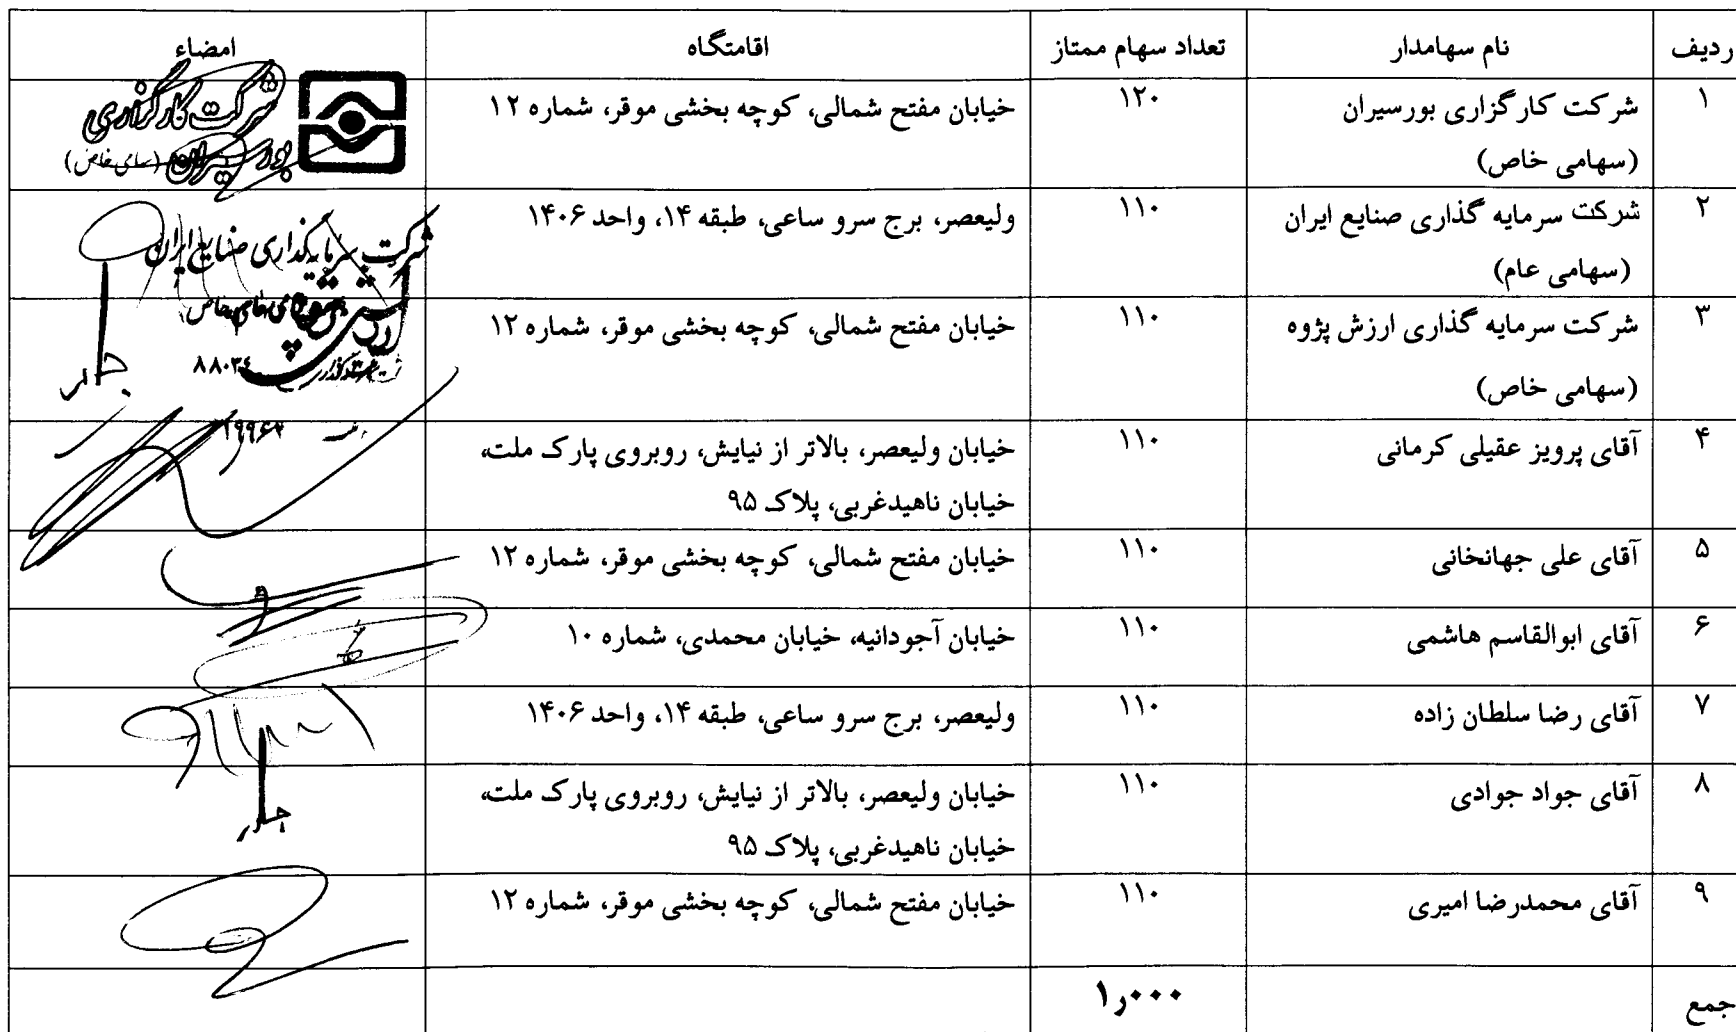 ردیف	نام سهامدار	تعداد سهام ممتاز	اقامتگاه	امضاء
۱	شرکت کارگزاری بورسیران	۱۲۰	خیابان مفتح شمالی، کوچه بخشی موقر، شماره ۱۲	شرکت کارگزاری
(سهامی خاص)	بورسیران (سهامی خاص)
۲	شرکت سرمایه گذاری صنایع ایران	۱۱۰	ولیعصر، برج سرو ساعی، طبقه ۱۴، واحد ۱۴۰۶	شرکت سرمایه گذاری صنایع ایران
(سهامی عام)
۳	شرکت سرمایه گذاری ارزش پژوه	۱۱۰	خیابان مفتح شمالی، کوچه بخشی موقر، شماره ۱۲
(سهامی خاص)	۸۸۰۳۴
۴	آقای پرویز عقیلی کرمانی	۱۱۰	خیابان ولیعصر، بالاتر از نیایش، روبروی پارک ملت،
خیابان ناهیدغربی، پلاک ۹۵
۵	آقای علی جهانخانی	۱۱۰	خیابان مفتح شمالی، کوچه بخشی موقر، شماره ۱۲
۶	آقای ابوالقاسم هاشمی	۱۱۰	خیابان آجودانیه، خیابان محمدی، شماره ۱۰
۷	آقای رضا سلطان زاده	۱۱۰	ولیعصر، برج سرو ساعی، طبقه ۱۴، واحد ۱۴۰۶
۸	آقای جواد جوادی	۱۱۰	خیابان ولیعصر، بالاتر از نیایش، روبروی پارک ملت،
خیابان ناهیدغربی، پلاک ۹۵
۹	آقای محمدرضا امیری	۱۱۰	خیابان مفتح شمالی، کوچه بخشی موقر، شماره ۱۲
جمع	۱٫۰۰۰